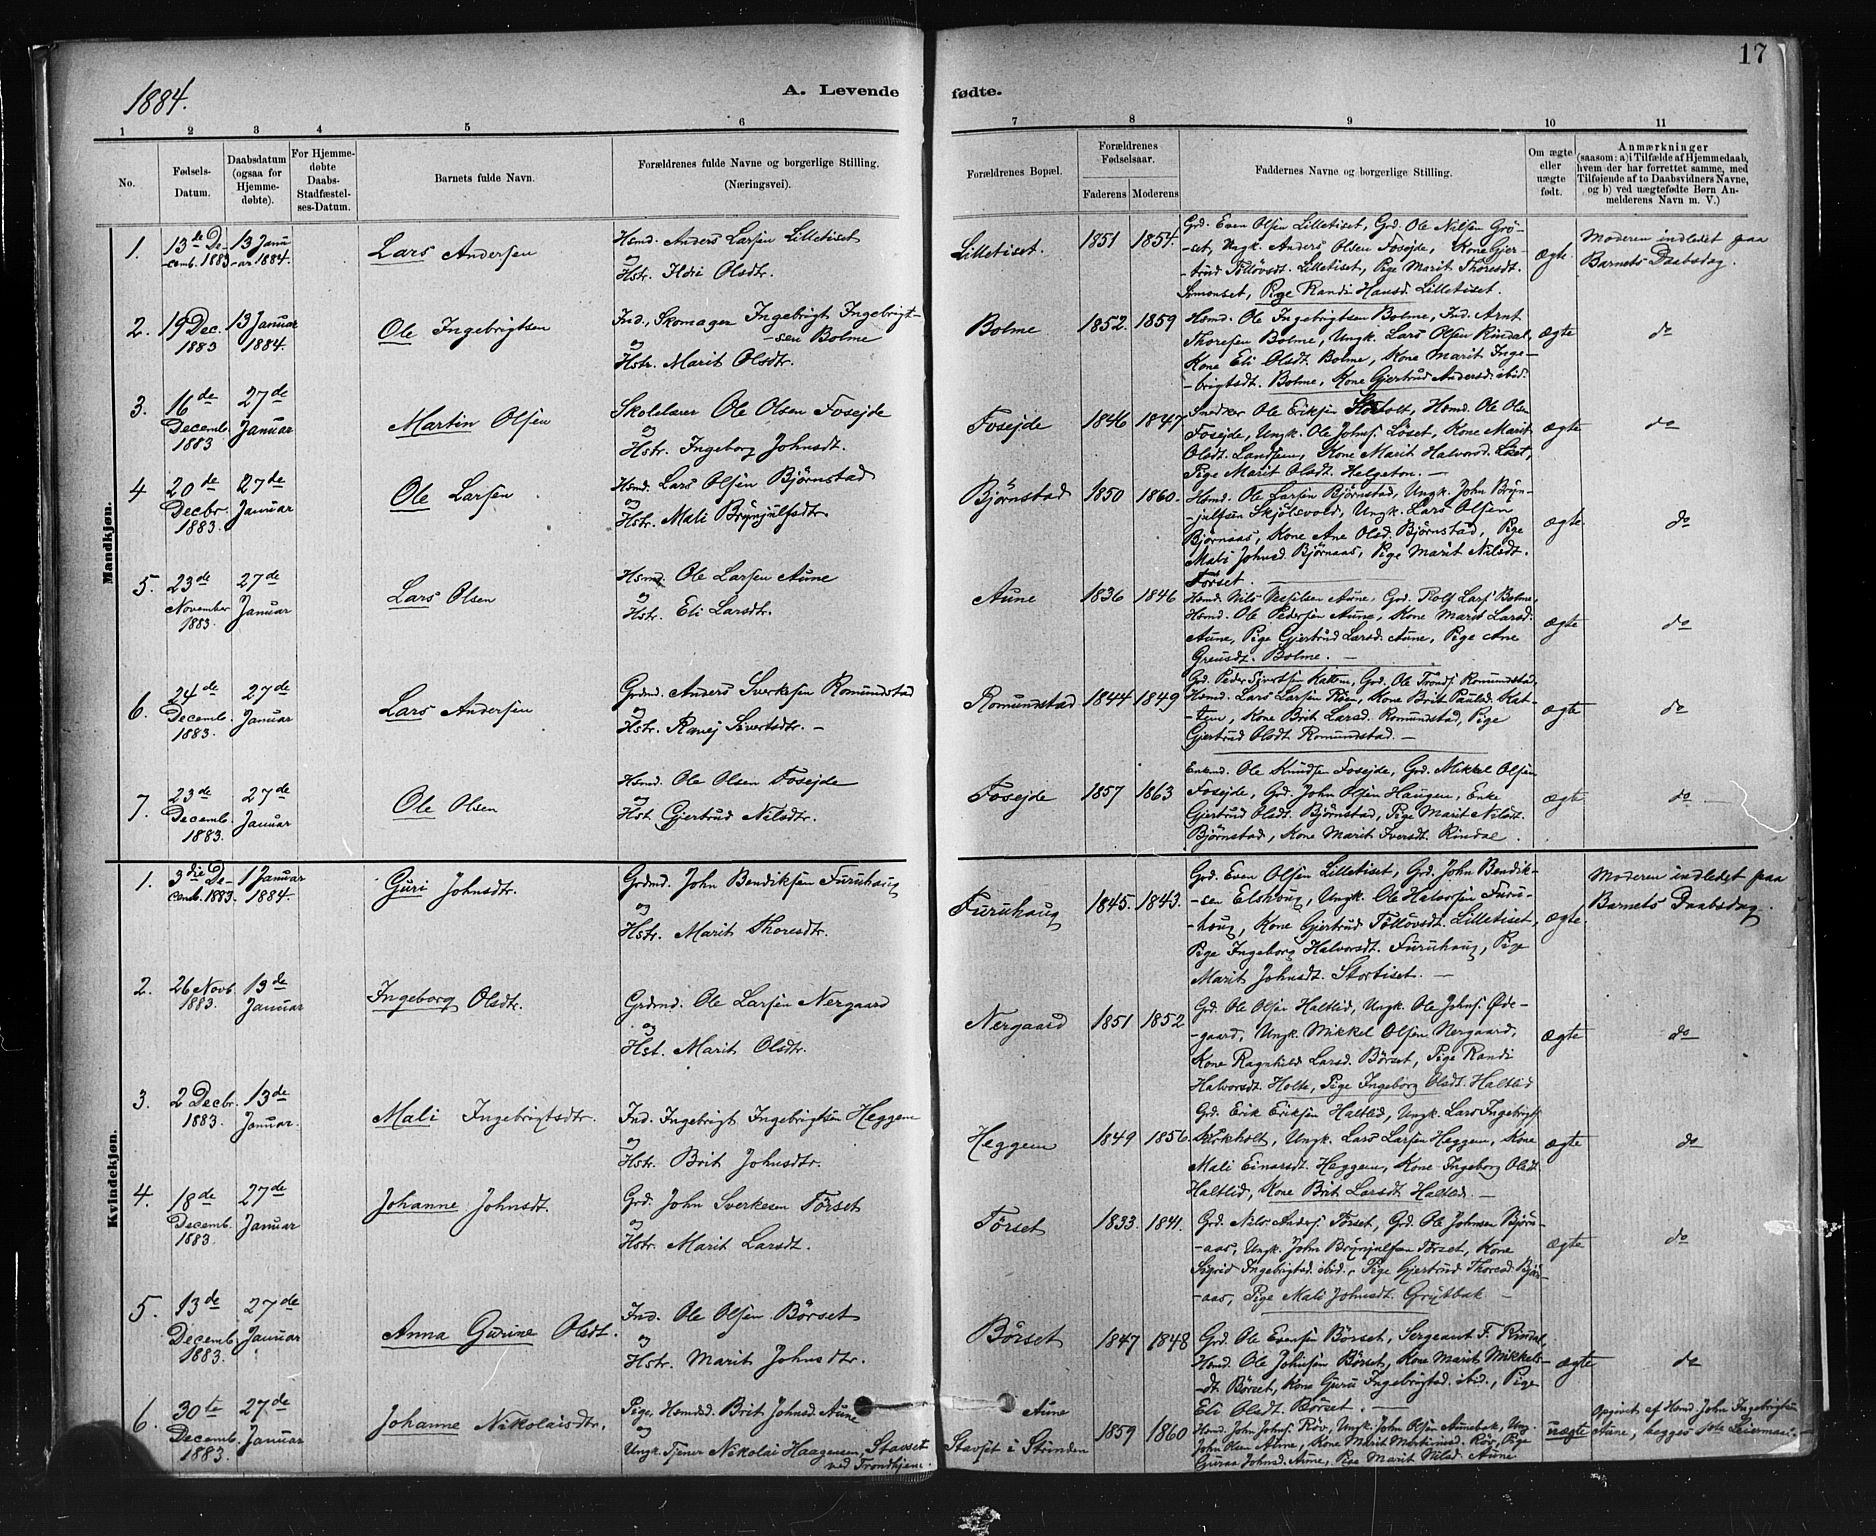 17
1884.
A. Levende fødte.
1 2 3 4 5 6 7 8 9 10 11
No.
Fødsels-
Datum.
Daabsdatum
(ogsaa for
Hjemme-
døbte).
For Hjemme-
døbte
Daabs-
Stadfæstel-
ses-Datum.
Barnets fulde Navn.
Forældrenes fulde Navne og borgerlige Stilling.
(Næringsvei).
Forældrenes Bopæl.
Forældrenes
Fødselsaar.
Faderens Moderens
Faddernes Navne og borgerlige Stilling.
Om ægte
eller
uægte
født.
Anmærkninger
(saasom: a) i Tilfælde af Hjemmedaab,
hvem der har forrettet samme, med
Tilføiende af to Daabsvidners Navne,
og b) ved uægtefødte Børn An-
melderens Navn m. V.)
Mandkjøn.
1.
13de De-
cemb. 1883
13 Janu-
ar 1884.
Lars Andersen
Hsmd. Anders Larsen Lilletiset
og
Hstr. Ildri Olsdtr.
Lilletiset.
1851 1854.
Grd. Even Olsen Lilletiset, Grd. Ole Nilsen Grö-
-set, Ungk. Anders Olsen Fosejde, Kone Gjer-
-trud Tollövsdt. Lilletiset, Pige Marit Thoresdt.
Simonset, Pige Randi Hansd. Lilletiset.
ægte.
Moderen indledet paa
Barnets Daabsdag.
2.
19 Dec.
1883
13 Januar
1884.
Ole Ingebrigtsen
Ind., Skomager Ingebrigt Ingebrigt-
-sen Bolme
og
Hstr. Marit Olsdtr.
Bolme
1852. 1859
Hsmd. Ole Ingebrigtsen Bolme, Ind. Arnt
Thoresen Bolme, Ungk. Lars Olsen Rindal,
Kone Eli Olsdt. Bolme, Kone Marit Inge-
-brigtsdt. Bolme, Kone Gjertrud Andersd. ibid.
ægte
do
3.
16de
Decemb.
1883
27de
Januar
Martin Olsen
Skolelærer Ole Olsen Fosejde
og
Hstr. Ingeborg Johnsdt.
Fosejde
1846 1847
Snedker Ole Eriksen, Hsmd. Ole Olsen
Fosejde, Ungk. Ole Johns. Löset, Kone Marit
Olsdt. Landsem, Kone Marit Halvorsd. Löset,
Pige Marit Olsdt. Helgeton. —
ægte
do
4
20de
Decbr.
1883.
27de
Januar
Ole Larsen
Hsmd. Lars Olsen Bjørnstad
og
Hstr. Mali Brynjulfsdtr.
Bjørnstad
1850 1860.
Hsmd. Ole Larsen Bjørnstad, Ungk. John Bryn-
-julfsen Skjölsvold, Ungk. Lars Olsen
Bjørnaas, Kone Ane Olsd. Bjørnstad, Pige
Mali Johnsd. Bjørnaas, Pige Marit Nilsdt.
Törset.
ægte
do
5
23de
November
1883.
27de
Januar
Lars Olsen
Hsmd. Ole Larsen Aune
og
Hstr. Eli Larsdtr.
Aune
1836 1846
Hsmd. Nils Nilsen Aune, Grd. Rolf Lars. Bolme,
Hsmd. Ole Pedersen Aune, Kone Marit Larsd.
Aune, Pige Gjertrud Larsd. Aune, Pige Ane
Bolme. —
ægte
do
6.
24de
Decemb.
1883.
27de
Januar
Lars Andersen
Grdmd. Anders Sverkesen Romundstad
og
Hstr. Ranej Sivertsdtr. —
Romundstad
1844 1849
Grd. Peder Sivertsen Kattem, Grd. Ole Tronds. Romundstad,
Hsmd. Lars Larsen Röen, Kone Brit Paulsd. Kat-
-tem, Kone Brit Larsd. Romundstad, Pige
Gjertrud Olsdt. Romundstad. —
ægte
do
7.
23de
Decemb.
1883.
27de
Januar
Ole Olsen
Hsmd. Ole Olsen Fosejde
og
Hst. Gjertrud Nilsdtr.
Fosejde
1857 1863
Enkmd. Ole Knudsen Fosejde, Grd. Mikkel Olsen
Fosejde, Grd. John Olsen Haugen, Enke
Gjertrud Olsdt. Bjørnstad, Pige Marit Nilsdt.
Bjørnstad, Kone Marit Iversdt. Rindal.
ægte
do —
Kvindekjøn.
1.
3die De-
cemb. 1883.
1 Januar
1884.
Guri Johnsdtr.
Grdmd. John Bendiksen Furuhaug
og
Hstr. Marit Thoresdtr.
Furuhaug
1845. 1843.
Grd. Even Olsen Lilletiset, Grd. John Bendik-
-sen Elshoug, Ungk. Ole Halvorsen Furu-
-haug, Kone Gjertrud Tollövsdt. Lilletiset,
Pige Ingeborg Halvorsdt. Furuhaug, Pige
Marit Johnsdt. Stortiset. —
ægte.
Moderen indledet paa
Barnets Daabsdag.
2.
26 Novb.
1883.
13de
Januar
Ingeborg Olsdtr.
Grdmd. Ole Larsen Nergaard
og
Hst. Marit Olsdtr.
Nergaard
1851 1852
Grd. Ole Olsen Haltlid, Ungk. Ole Johns. Øde-
-gaard, Ungk. Mikkel Olsen Nergaard,
Kone Ragnhild Larsd. Børset, Pige Randi
Halvorsdt. Holte, Pige Ingeborg Olsdt. Haltlid
ægte
do
3.
2 Decbr.
1883.
13de
Januar.
Mali Ingebrigtsdtr.
Ind. Ingebrigt Ingebrigtsen Heggem
og
Hstr. Brit Johnsdtr.
Heggem
1849 1856.
Grd. Erik Eriksen Haltlid, Ungk. Lars Ingebrigts.
Kirkholt, Ungk. Lars Larsen Heggem, Kone
Mali Einarsdt. Heggem, Kone Ingeborg Olsdt.
Haltlid, Kone Brit Larsdt. Haltlid. —
ægte
do
4.
18de
Decemb.
1883.
27de
Januar
Johanne Johnsdt.
Grd. John Sverkesen Törset
og
Hstr. Marit Larsdt.
Törset
1833. 1841.
Grd. Nils Anders. Törset, Grd. Ole Johnsen Bjørn-
-aas, Ungk. John Brynjulfsen Törset, Kone
Sigrid Ingebrigtsd. ibid., Pige Gjertrud Thoresd. Bjør-
-aas, Pige Mali Johnsdt. Grytbak —
ægte
do
5.
13de
Decemb.
1883.
27de
Januar
Anna Gurine Olsdt.
Ind. Ole Olsen Børset
og
Hstr. Marit Johnsdtr.
Børset
1847 1848
Grd. Ole Evensen Børset, Sergeant F. Rindal,
Hsmd. Ole Johnsen Børset, Kone Marit Mikkels-
-dt. Børset, Kone Guru Ingebrigtsd. ibid., Pige
Eli Olsdt. Børset. —
ægte
do
6.
30te
Decemb.
1883.
27de
Januar
Johanne Nikolaisdtr.
Pige, Hsmdsd. Brit Johnsd. Aune
og
Ungk. Tjener Nikolai Haagensen Stavset
ved Trondhjem.
Aune
Stavset i Strinden
1859 1860
Hsmd. John Johns. Röv, Ungk. John Olsen Aunebak, Ung.
John Olsen Aune, Kone Marit Martinusd. Röv, Pige
Guraa Johnsd. Aune, Pige Marit Nilsd. Aune
uægte
Opgivet af Hsmd. John Ingebrigtsen
Aune, begges 1ste Leiermaal. —